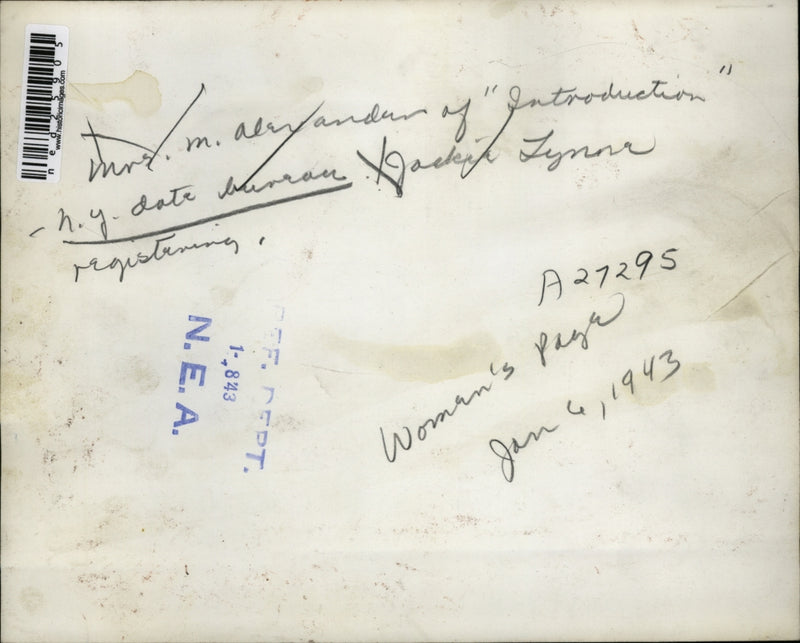 Mrs. M. Alexander of "Introduction"
- N.Y. date bureau. Jackie Lynne
registering.
A27295
Woman's Page
Jan 6, 1943
REF. DEPT.
1-,843
N.E.A.
ned25905
www.historicimages.com